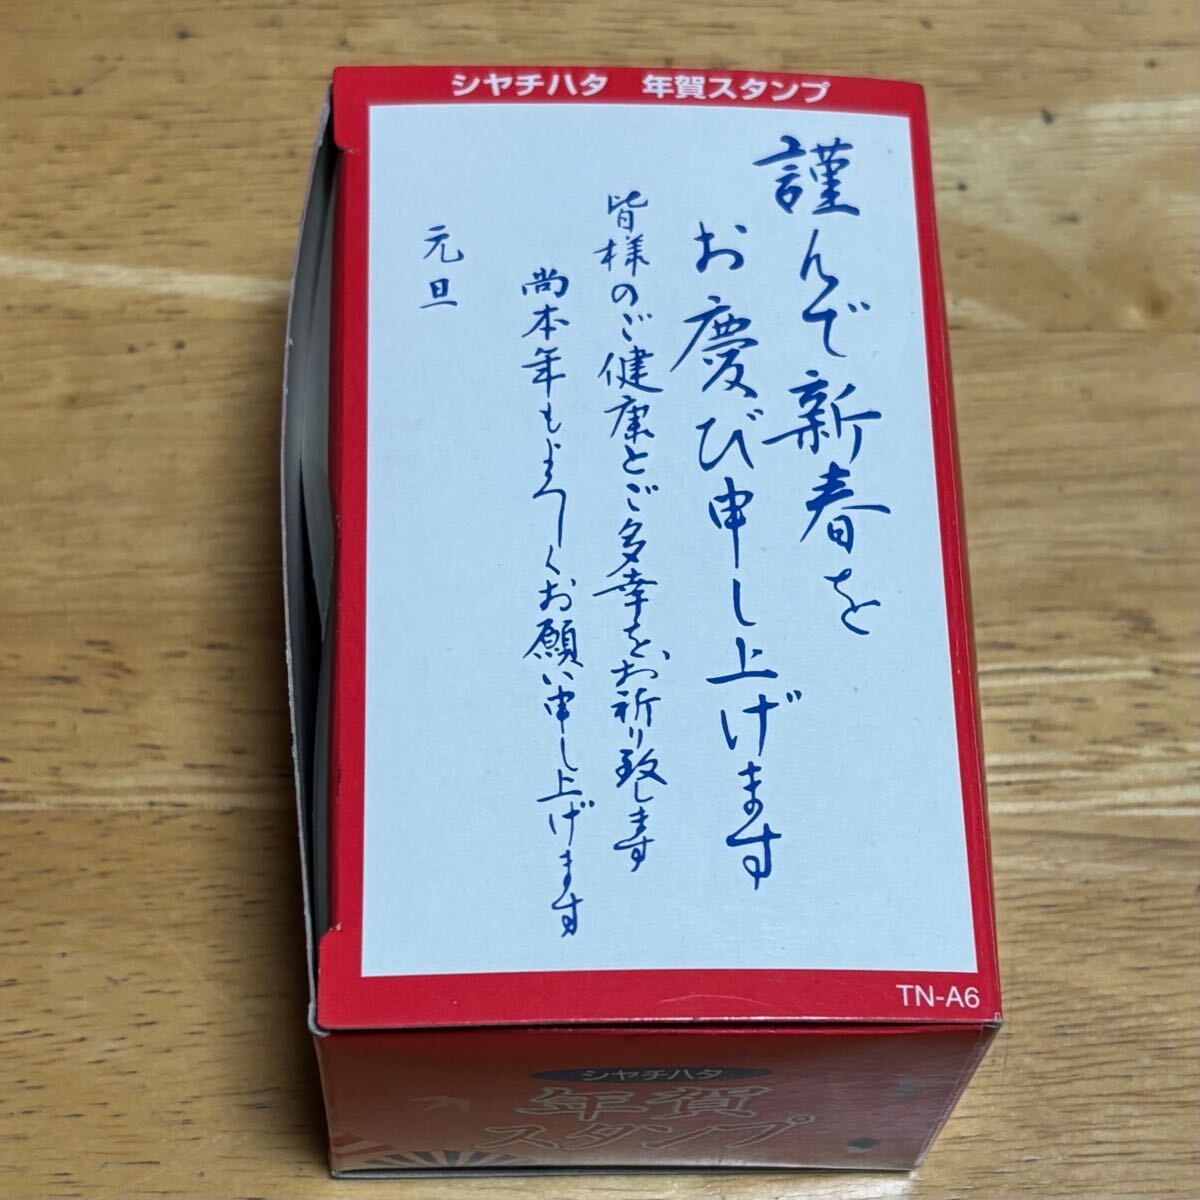 シヤチハタ 年賀スタンプ
謹んで新春を
お慶び申し上げます
皆様のご健康とご多幸をお祈り致します
尚本年もよろしくお願い申し上げます
元旦
TN-A6
シヤチハタ
年賀
スタンプ